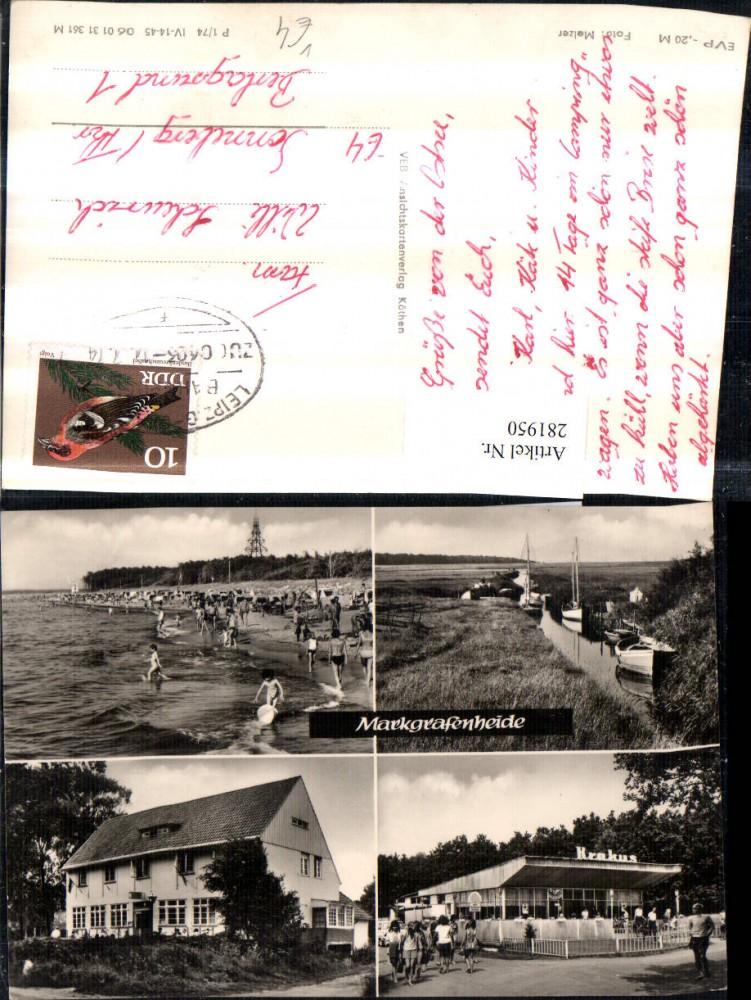 EVP -,20 M
Foto: Melzer
P 1/74 IV-14-45 O6 01 31 361 M
64
Fam.
Willi
64 Sonneberg / Thür
1
VEB Ansichtskartenverlag Köthen
DDR
10
LEIPZ
Grüße von der Ostsee,
sendet Euch,
Karl, Käte u. Kinder
sd hier 14 Tage im Camping
wagen. Es ist ganz schön nur etwas
zu kühl, wenn die steife Brise weht.
Haben uns aber schon ganz schön
abgehärtet.
Artikel Nr.
281950
Markgrafenheide
Krakus